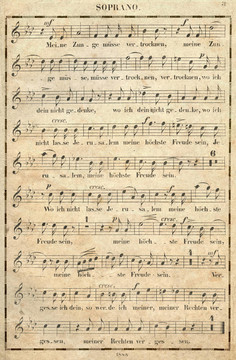 SOPRANO.
mf
Mei_ne Zun_ge müsse ver_trocknen, meine Zun_
ge müs_se, müsse ver_trock_nen, ver_trocknen, wo ich
dein nicht ge_denke, wo ich dein nicht ge_den_ke, wo ich
nicht las_se Je_ru_sa_lem meine höchste Freude sein, Je_
6
ru_sa_lem, meine höchste Freude sein.
cresc.
Wo ich nicht las_se Je_ru_sa_lem meine höch_ste
cresc.
Freude sein, meine höch_ste Freude sein,
meine höch_ste Freude sein. Ver_
cresc.
ges_se ich dein, so wer_de ich meiner, meiner Rechten ver_
ges_sen, meiner Rechten ver_ges_sen.